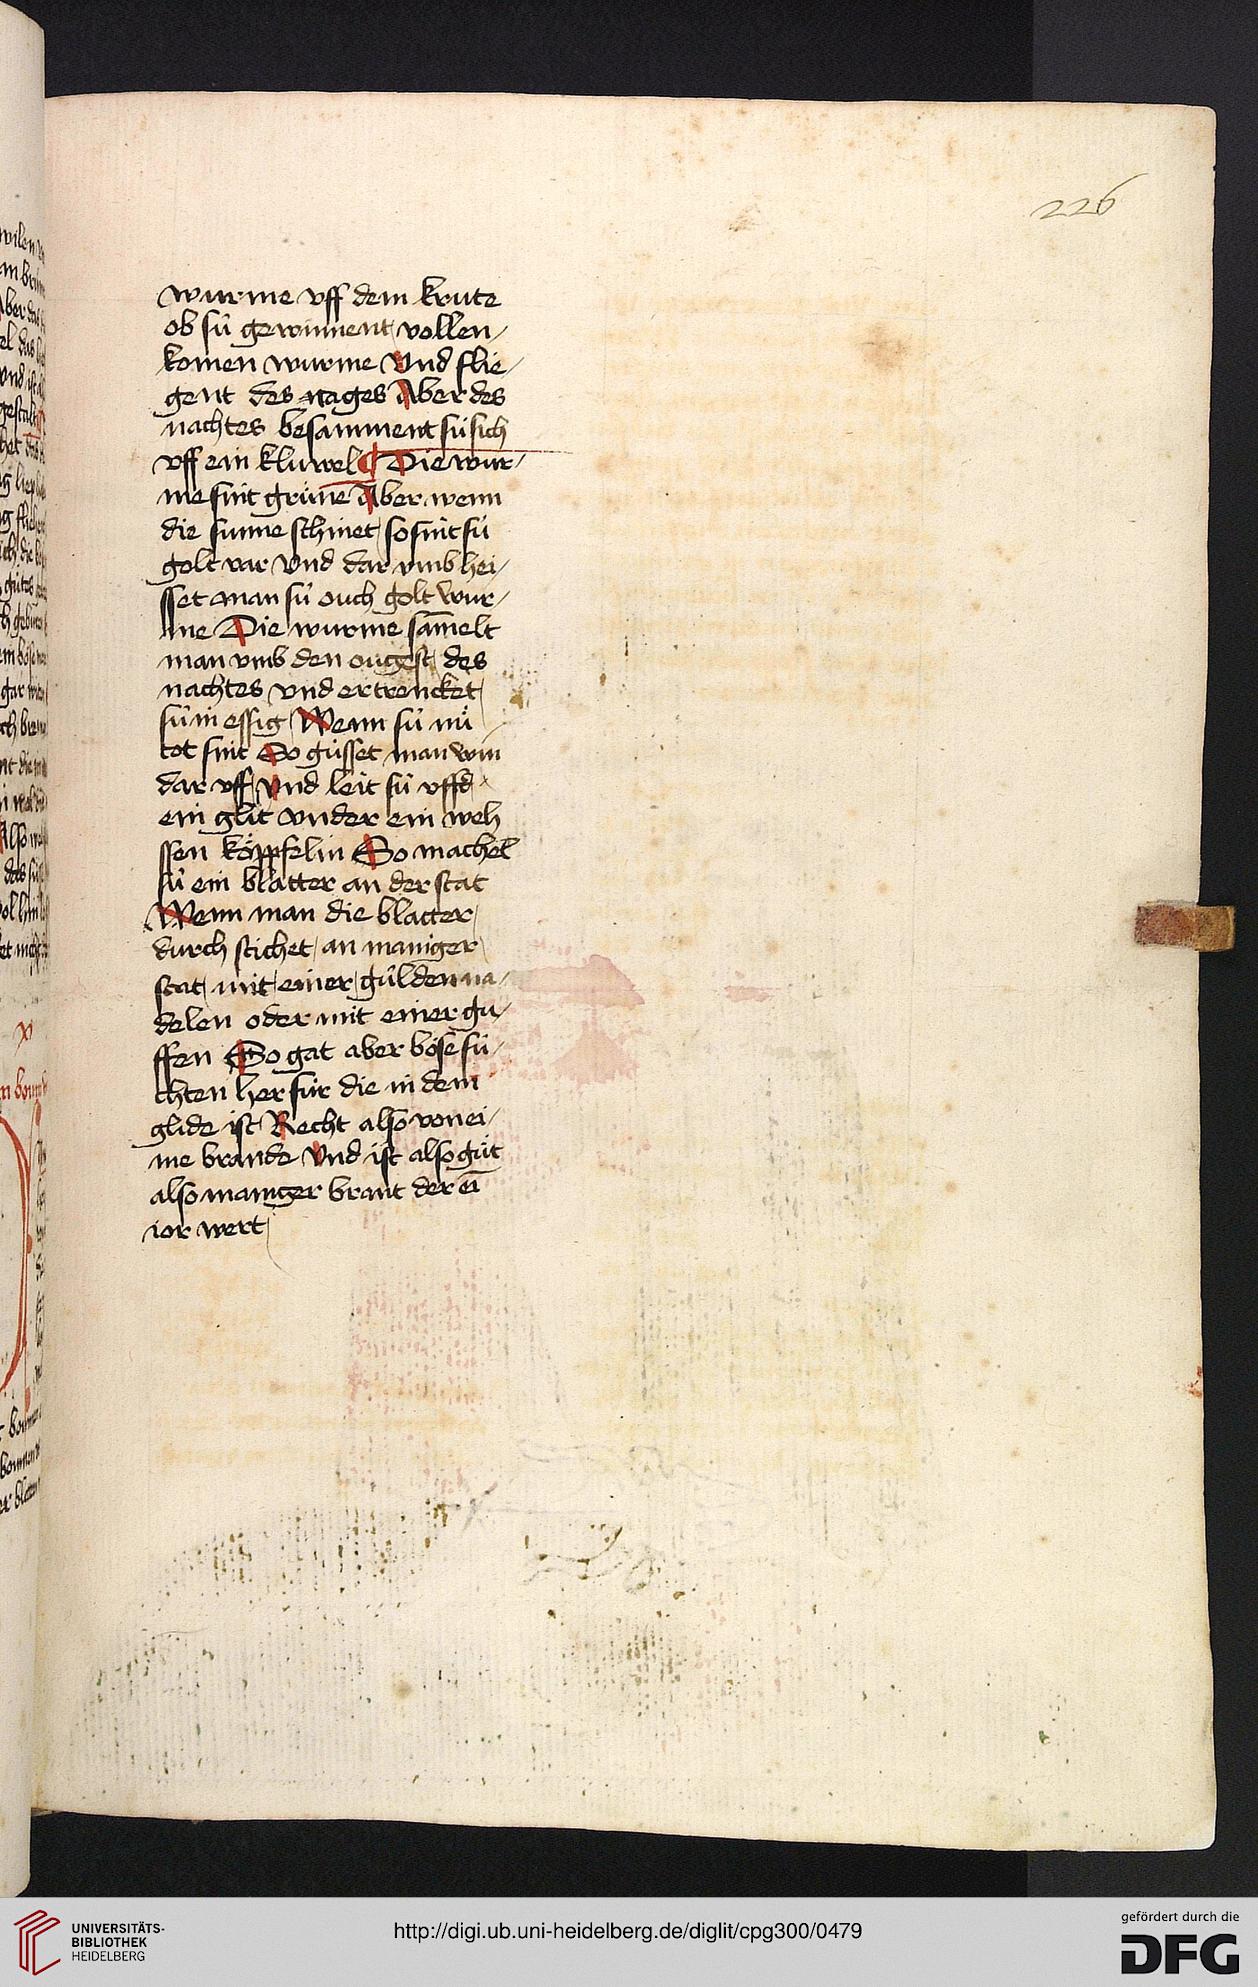 226
wurme vff dem krute
ob sú gewinnent vollen-
komen wurme Vnd flie-
gent des tages Aber des
nachtes besamment sú sich
vff ein kluwel ¶ Die wur-
me sint grúne Aber wenn
die sunne schinet so sint sú
golt var Vnd dar vmb hei-
sset man sú ouch golt wur-
me Die wurme sam̄elt
man vmb den ougest des
nachtes vnd ertrencket
sú in essig Wenn sú nü
tot sint So gússet man win
dar vff Vnd leit sú vff
ein glit vnder ein weh
ssen köppfelin So machet
sú ein blatter an der stat
Wenn man die blatter
durch stichet an maniger
stat mit einer gúlden na-
delen oder mit einer gu-
ffen So gat aber böse fú-
chten her für die in dem
glide ist Recht also von ei-
me brande Vnd ist also güt
also maniger brant der ei
ior wert
UNIVERSITÄTS-
BIBLIOTHEK
HEIDELBERG
http://digi.ub.uni-heidelberg.de/diglit/cpg300/0479
gefördert durch die
DFG